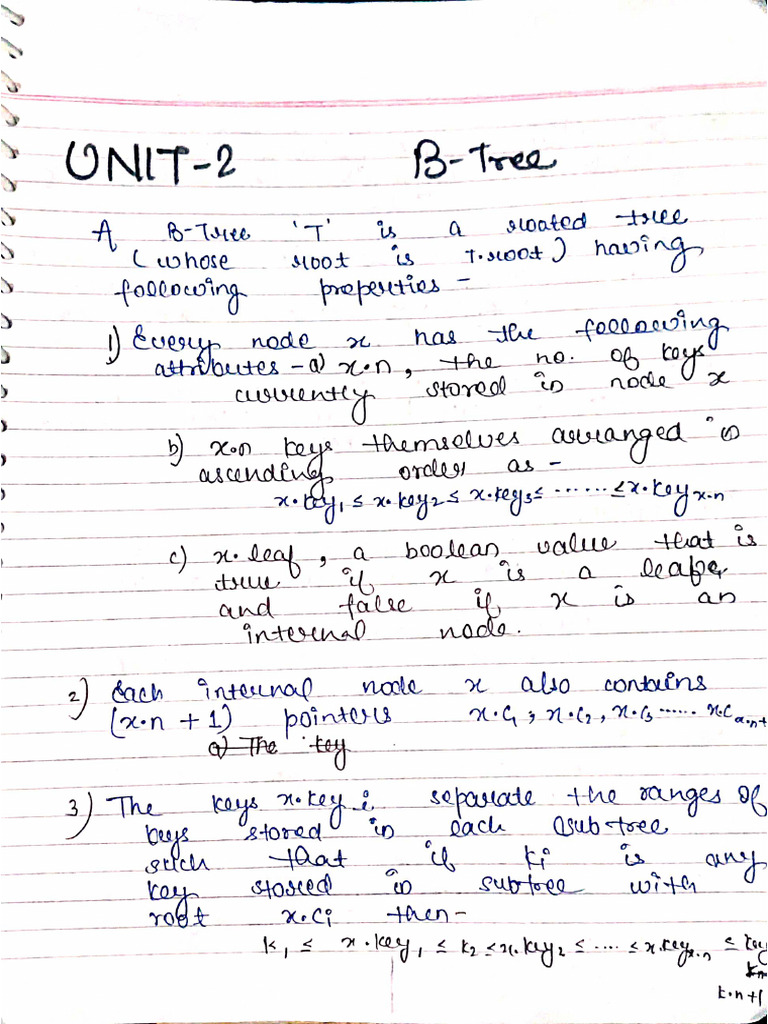 UNIT-2 B-Tree
A B-Tree 'T' is a rooted tree
(whose root is T.root) having
following properties -
1) Every node x has the following
attributes - a) x.n, the no. of keys
currently stored in node x
b) x.n keys themselves arranged in
ascending order as -
x.key₁ ≤ x.key₂ ≤ x.key₃ ≤ ...... ≤ x.key x.n
c) x.leaf, a boolean value that is
true if x is a leaf
and false if x is an
internal node.
2) Each internal node x also contains
(x.n + 1) pointers x.c₁, x.c₂, x.c₃ ...... x.c x.n+
a) The key
3) The keys x.key i separate the ranges of
keys stored in each subtree
such that if ki is any
key stored in subtree with
root x.ci then -
k₁ ≤ x.key₁ ≤ k₂ ≤ x.key₂ ≤ .... ≤ x.key x.n ≤ key
k.n+1